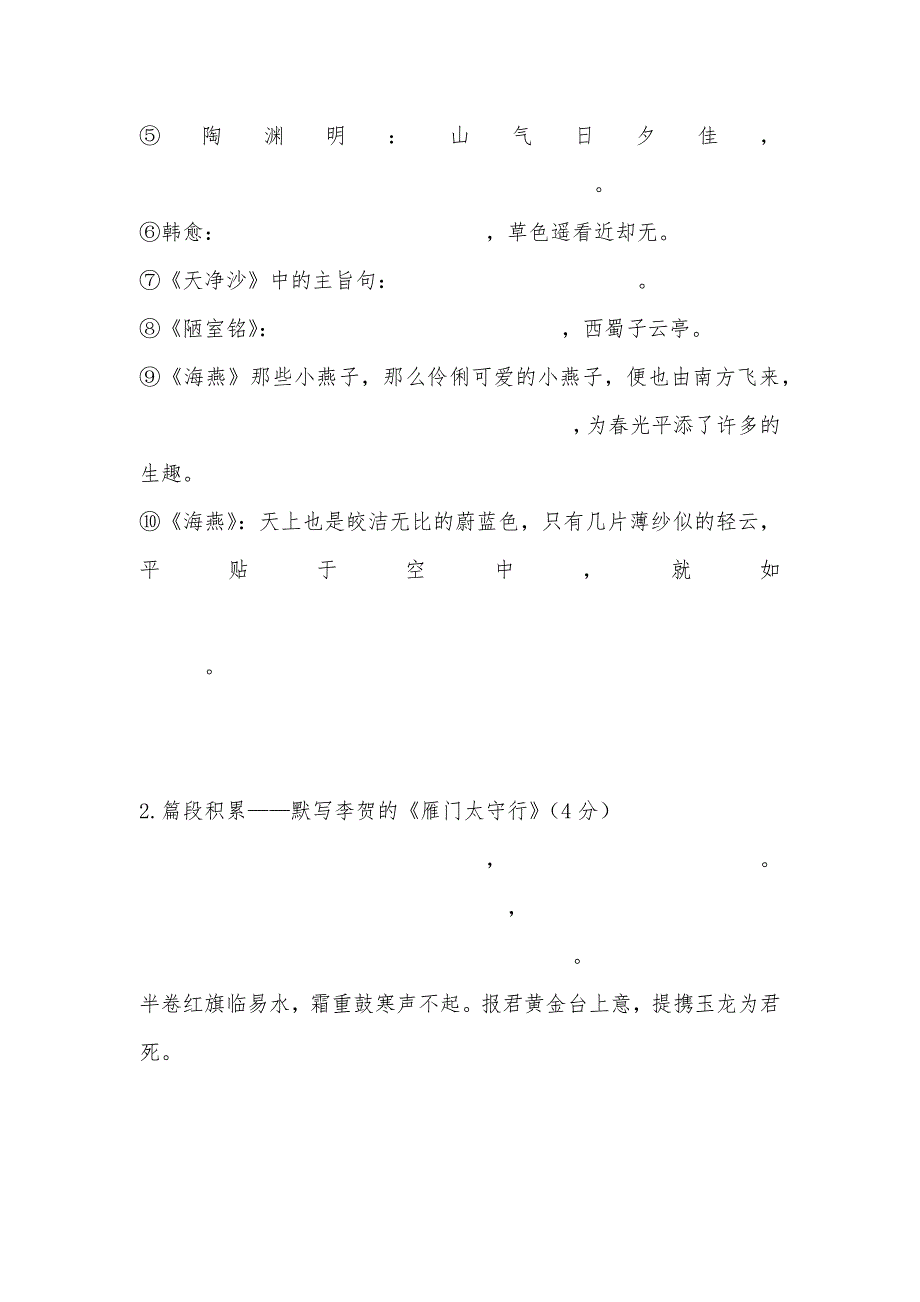 ⑤陶渊明：山气日夕佳，
。
⑥韩愈： ，草色遥看近却无。
⑦《天净沙》中的主旨句： 。
⑧《陋室铭》： ，西蜀子云亭。
⑨《海燕》那些小燕子，那么伶俐可爱的小燕子，便也由南方飞来，
，为春光平添了许多的
生趣。
⑩《海燕》：天上也是皎洁无比的蔚蓝色，只有几片薄纱似的轻云，
平贴于空中，就如
。
2.篇段积累——默写李贺的《雁门太守行》（4 分）
， 。
，
。
半卷红旗临易水，霜重鼓寒声不起。报君黄金台上意，提携玉龙为君
死。